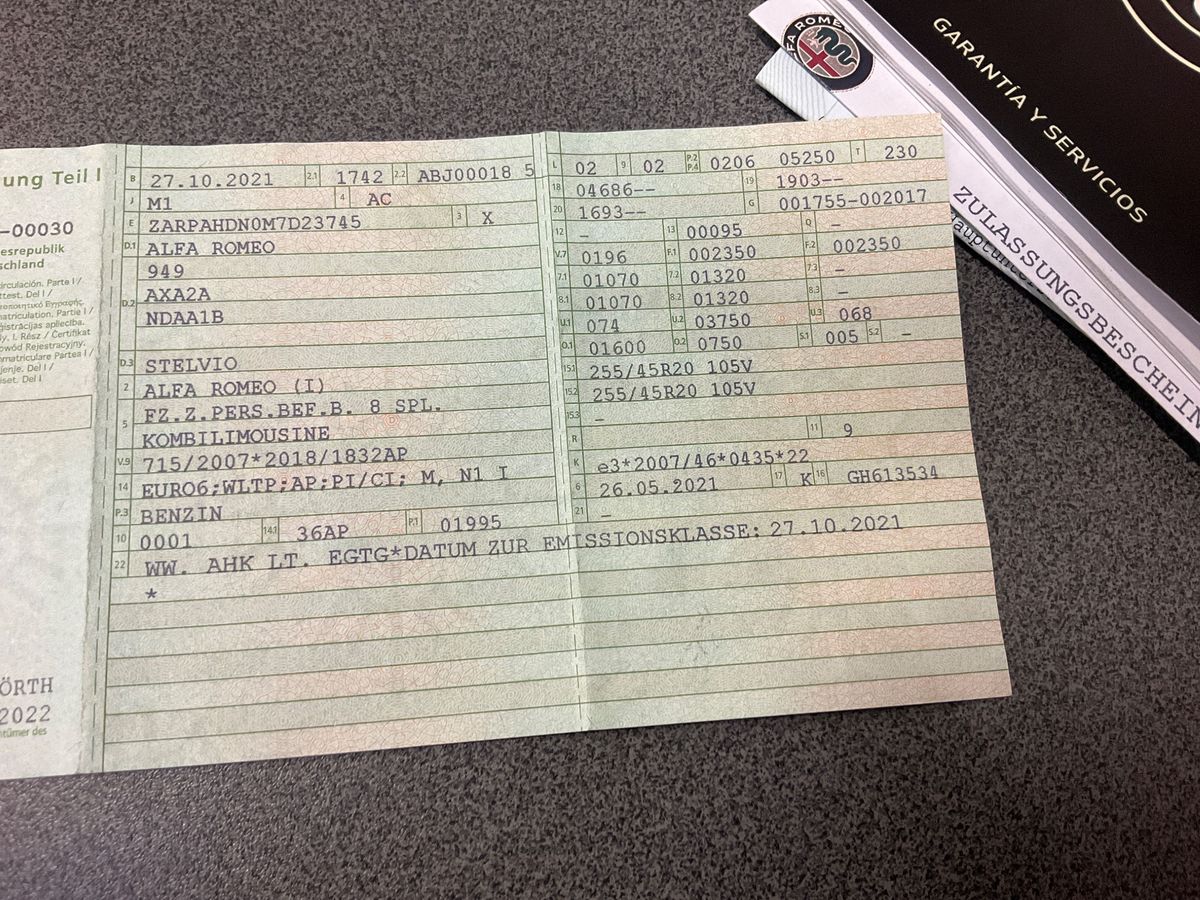 ung Teil I
-00030
esrepublik
schland
circulación. Parte I /
ttest. Del I /
matriculation. Parte I /
ģistrācijas apliecība.
y. I. Rész / Ċertifikat
owód Rejestracyjny.
matriculare Partea I /
jenje. Del I /
iset. Del I
ÖRTH
2022
ntümer des
B 27.10.2021 2.1 1742 2.2 ABJ00018 5
J M1 4 AC
E ZARPAHDN0M7D23745 3 X
D.1 ALFA ROMEO
949
D.2 AXA2A
NDAA1B
D.3 STELVIO
2 ALFA ROMEO (I)
5 FZ.Z.PERS.BEF.B. 8 SPL.
KOMBILIMOUSINE
V.9 715/2007*2018/1832AP
14 EURO6;WLTP;AP;PI/CI; M, N1 I
P.3 BENZIN
10 0001 14.1 36AP P.1 01995
22 WW. AHK LT. EGTG*DATUM ZUR EMISSIONSKLASSE: 27.10.2021
*
L 02 9 02 P.2 P.4 0206 05250 T 230
18 04686-- 19 1903--
20 1693-- G 001755-002017
12 - 13 00095 Q -
V.7 0196 F.1 002350 F.2 002350
7.1 01070 7.2 01320 7.3 -
8.1 01070 8.2 01320 8.3 -
U.1 074 U.2 03750 U.3 068
O.1 01600 O.2 0750 S.1 005 S.2 -
15.1 255/45R20 105V
15.2 255/45R20 105V
15.3 -
R 11 9
K e3*2007/46*0435*22
6 26.05.2021 17 K 16 GH613534
21 -
ALFA ROMEO
GARANTÍA Y SERVICIOS
ZULASSUNGSBESCHEIN
Hauptunte